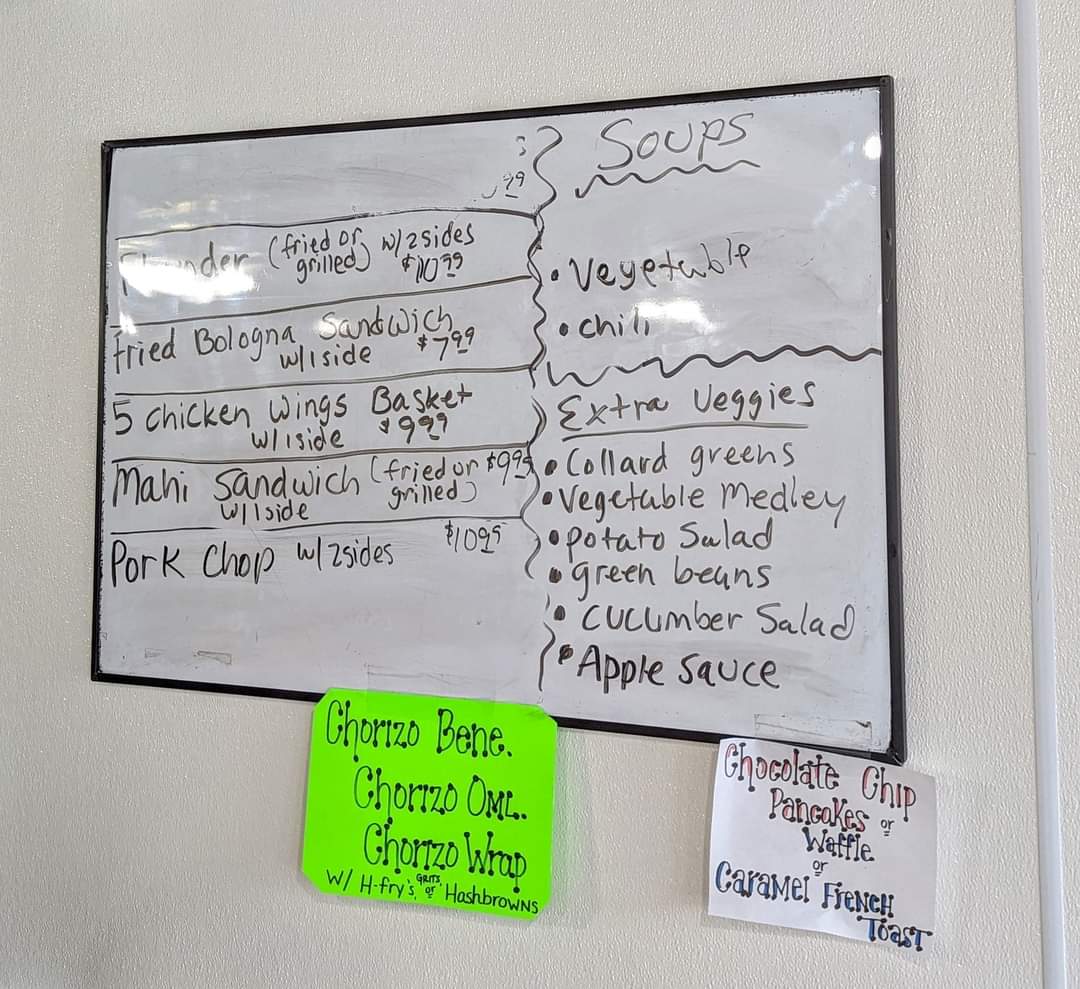 Flounder (fried or grilled) w/2sides
$10.99
Fried Bologna Sandwich
w/1side $7.99
5 Chicken Wings Basket
w/1side $9.99
Mahi Sandwich (fried or grilled) $9.95
w/1side
Pork Chop w/2sides $10.95
Soups
• Vegetable
• chili
Extra Veggies
• Collard greens
• Vegetable Medley
• potato Salad
• green beans
• cucumber Salad
• Apple sauce
Chorizo Bene.
Chorizo OML.
Chorizo Wrap
W/ H-fry's, GRITS, or Hashbrowns
Chocolate Chip
Pancakes or
Waffle
or
Caramel French
Toast